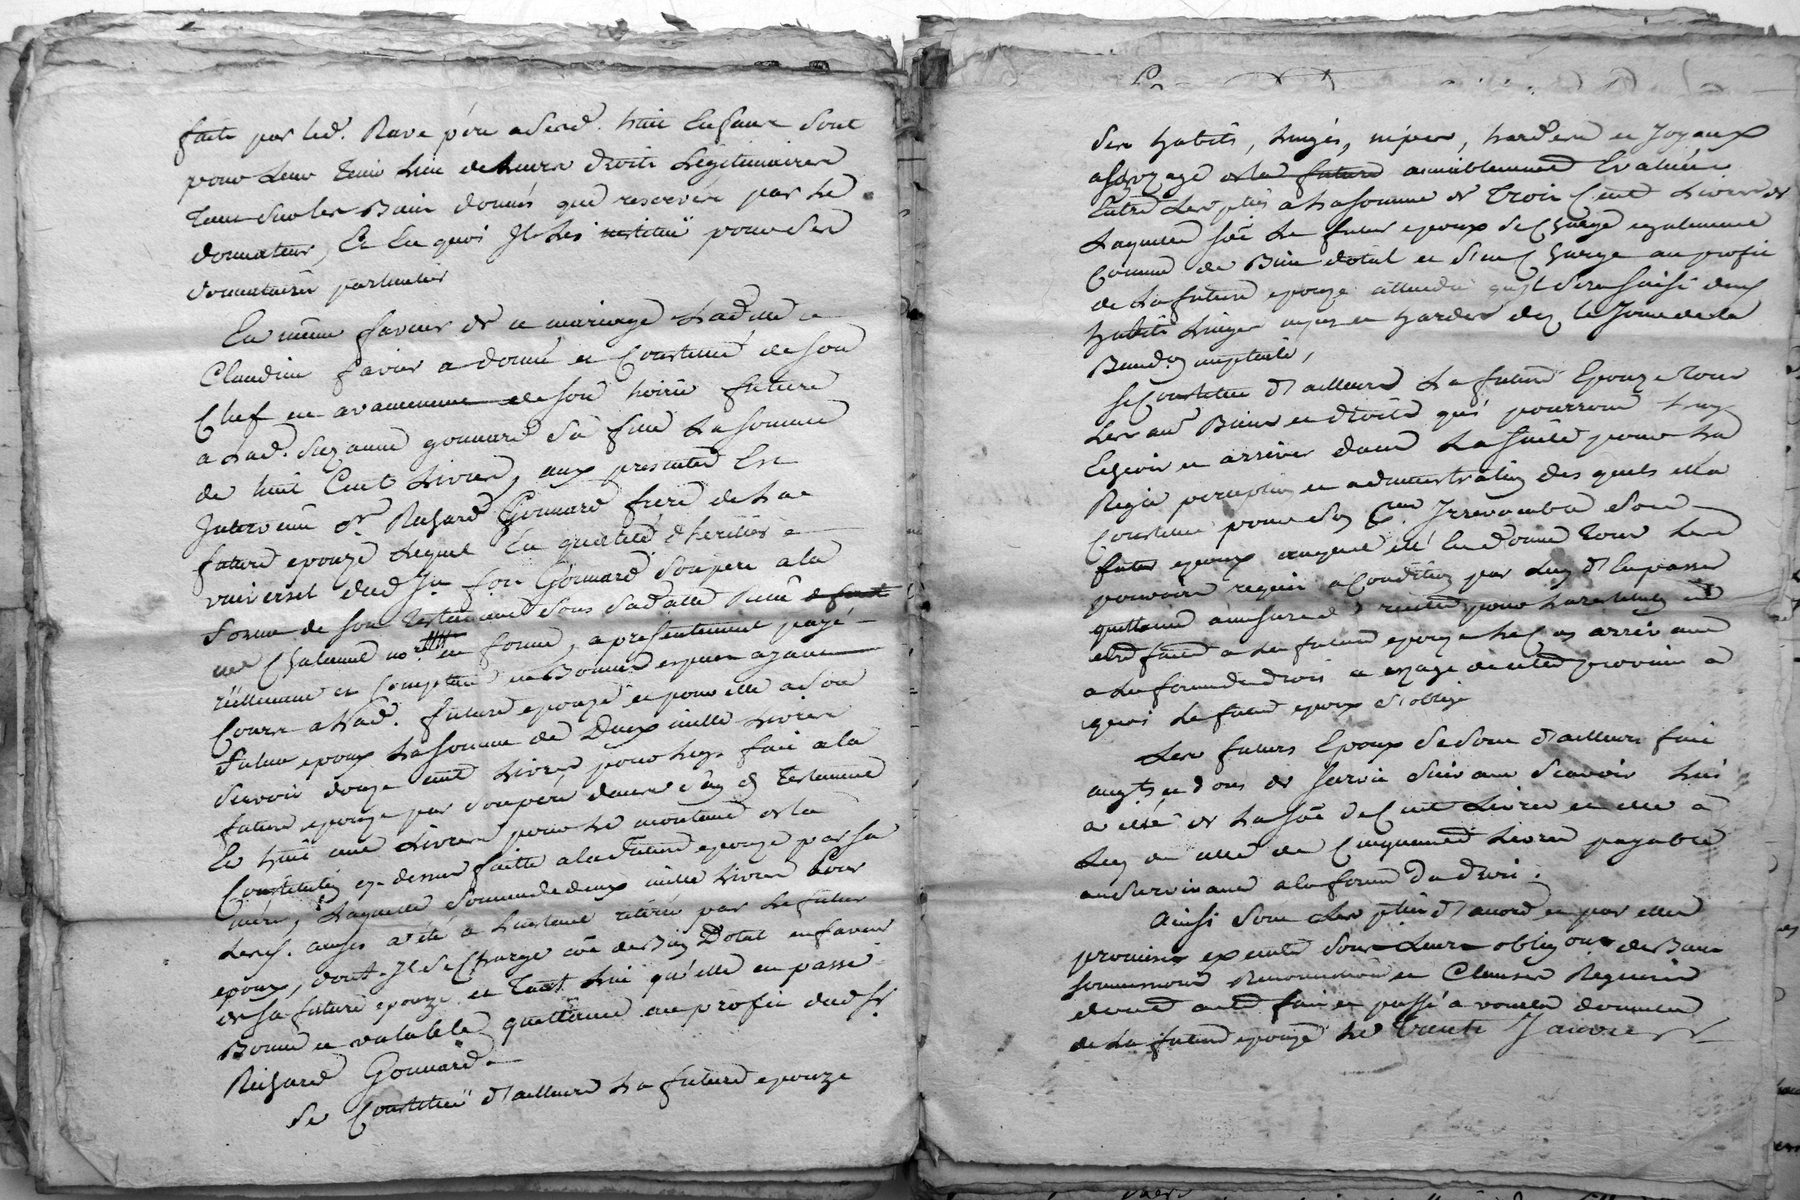 faite par led. Rave père a sesd. huit Enfans sont
pour leur tenir lieu de leurs droits Legitimaires
tant sur les Biens donnés que reservés par le
donnateur, Et En quoi Il les institue pour ses
donnataires particuliers
En même faveur de ce mariage Lad.
Claudine favier a donné et Constitué de son
Chef en avancement de son hoirie future
a Lad. Suzanne gonnard sa fille La somme
de huit Cent Livres, aux presentes Est
Intervenu sr. Richard Gonnard frere de La
future epouze Lequel En qualité d'heritier
universel dud. Gonnard son pere a la
forme de son testament sous sa datte Reçu
me Chalumel nore. en forme, a presentement payé
réellement et Comptant en Bonnes especes ayant
Cours a Lad. future epouze et pour elle a son
futur epoux La somme de Deux mille Livres
Scavoir douze cent Livres pour Legs fait a la
future epouze par son père dans sond. Testament
Et huit cent Livres pour le montant de la
Constitution cy dessus faitte a la future epouze par sa
mère, Laquelle somme de deux mille Livres pour
Lesd. causes a été a L'instant retirée par Le futur
epoux, dont Il se Charge de Bien Dotal en faveur
de sa future epouze et tant Lui qu'elle en passe
Bonne et valable quittance au profit dud. Sr.
Richard Gonnard
Se Constitue d'ailleurs La future epouze
ses habits, linges, nipes, hardes et Joyaux
a son uzage de la future amiablement Evalués
Entre Les pties a La somme de Trois Cent Livres de
Laquelle Le futur epoux se Charge egalement
Comme de Bien dotal et s'en Charge au profit
de La future epouze attendu qu'il sera saisi desd.
habits Linges nipes et hardes dez le Jour de la
Bened. nuptiale,
Se Constitue d'ailleurs La future Epouze tous
Les au Biens et droits qui pourront luy
Echeoir et arriver dans La suitte pour La
Regie perception et administration des quels elle
Constitue pour son Irrevocable son
futur epoux auquel elle En donne tous Les
pouvoirs requis a Condition par Luy d'En passer
quittance a mesure de recette pour La restitution en
etre faitte a La future epouze Le Cas arrivant
a La forme du droit
quoi Le futur epoux s'oblige
Les futurs Epoux se sont d'ailleurs fait
augts. et dons de survie suivant Scavoir Lui
a elle de La sôe de Cent Livres et elle a
Luy de celle de Cinquante Livres payable
au survivant a la forme du droit.
Ainsi sont Les pties d'acord et par elles
promis executer sous Leurs obligons. de Biens
soumissions Renonciations et Clauses Requises
dont acte fait et passé a vourles domicile
de La future epouze Le trente Janvier